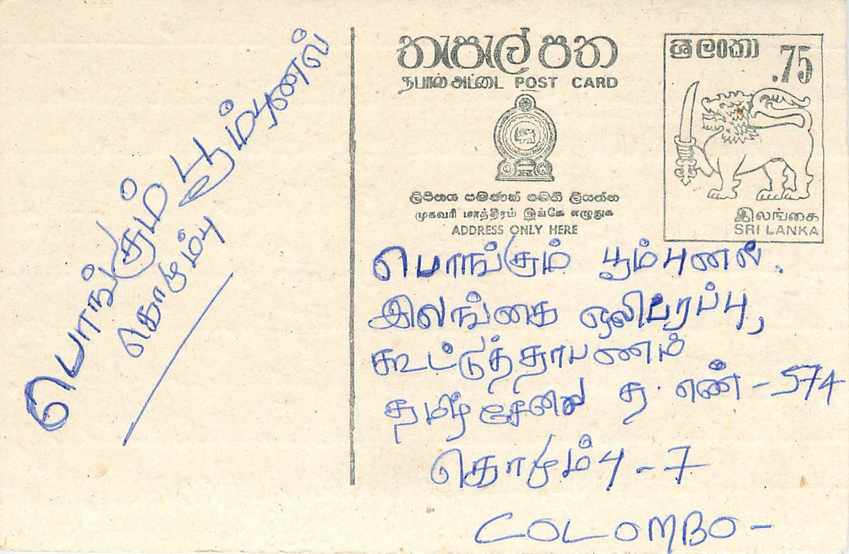 பொங்கும் பூம்புனல்
கொழும்பு
තැපැල් පත
தபால் அட்டை POST CARD
ලිපිනය පමණක් මෙහි ලියන්න
முகவரி மாத்திரம் இங்கே எழுதுக
ADDRESS ONLY HERE
ශ්‍රී ලංකා
.75
இலங்கை
SRI LANKA
பொங்கும் பூம்புனல்.
இலங்கை ஒலிபரப்பு,
கூட்டுத்தாபணம்
தமிழ் சேவை த. எண் - 574
கொழும்பு - 7
COLOMBO -